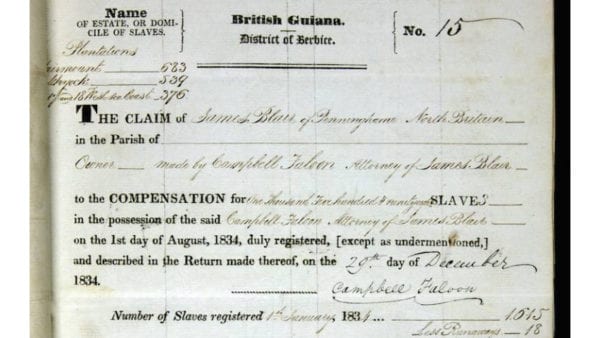 Name
OF ESTATE, OR DOMI-
CILE OF SLAVES.
British Guiana.
District of Berbice.
No. 15
Plantations
683
539
and 18 West Sea Coast 376
THE CLAIM of James Blair of Penninghame North Britain
in the Parish of
Owner made by Campbell Faloon Attorney of James Blair
to the COMPENSATION for One Thousand Five hundred & ninety SLAVES
in the possession of the said Campbell Faloon Attorney of James Blair
on the 1st day of August, 1834, duly registered, [except as undermentioned,]
and described in the Return made thereof, on the 29th day of December
1834.
Campbell Faloon
Number of Slaves registered 1st January 1834 1615
Less Runaways 18